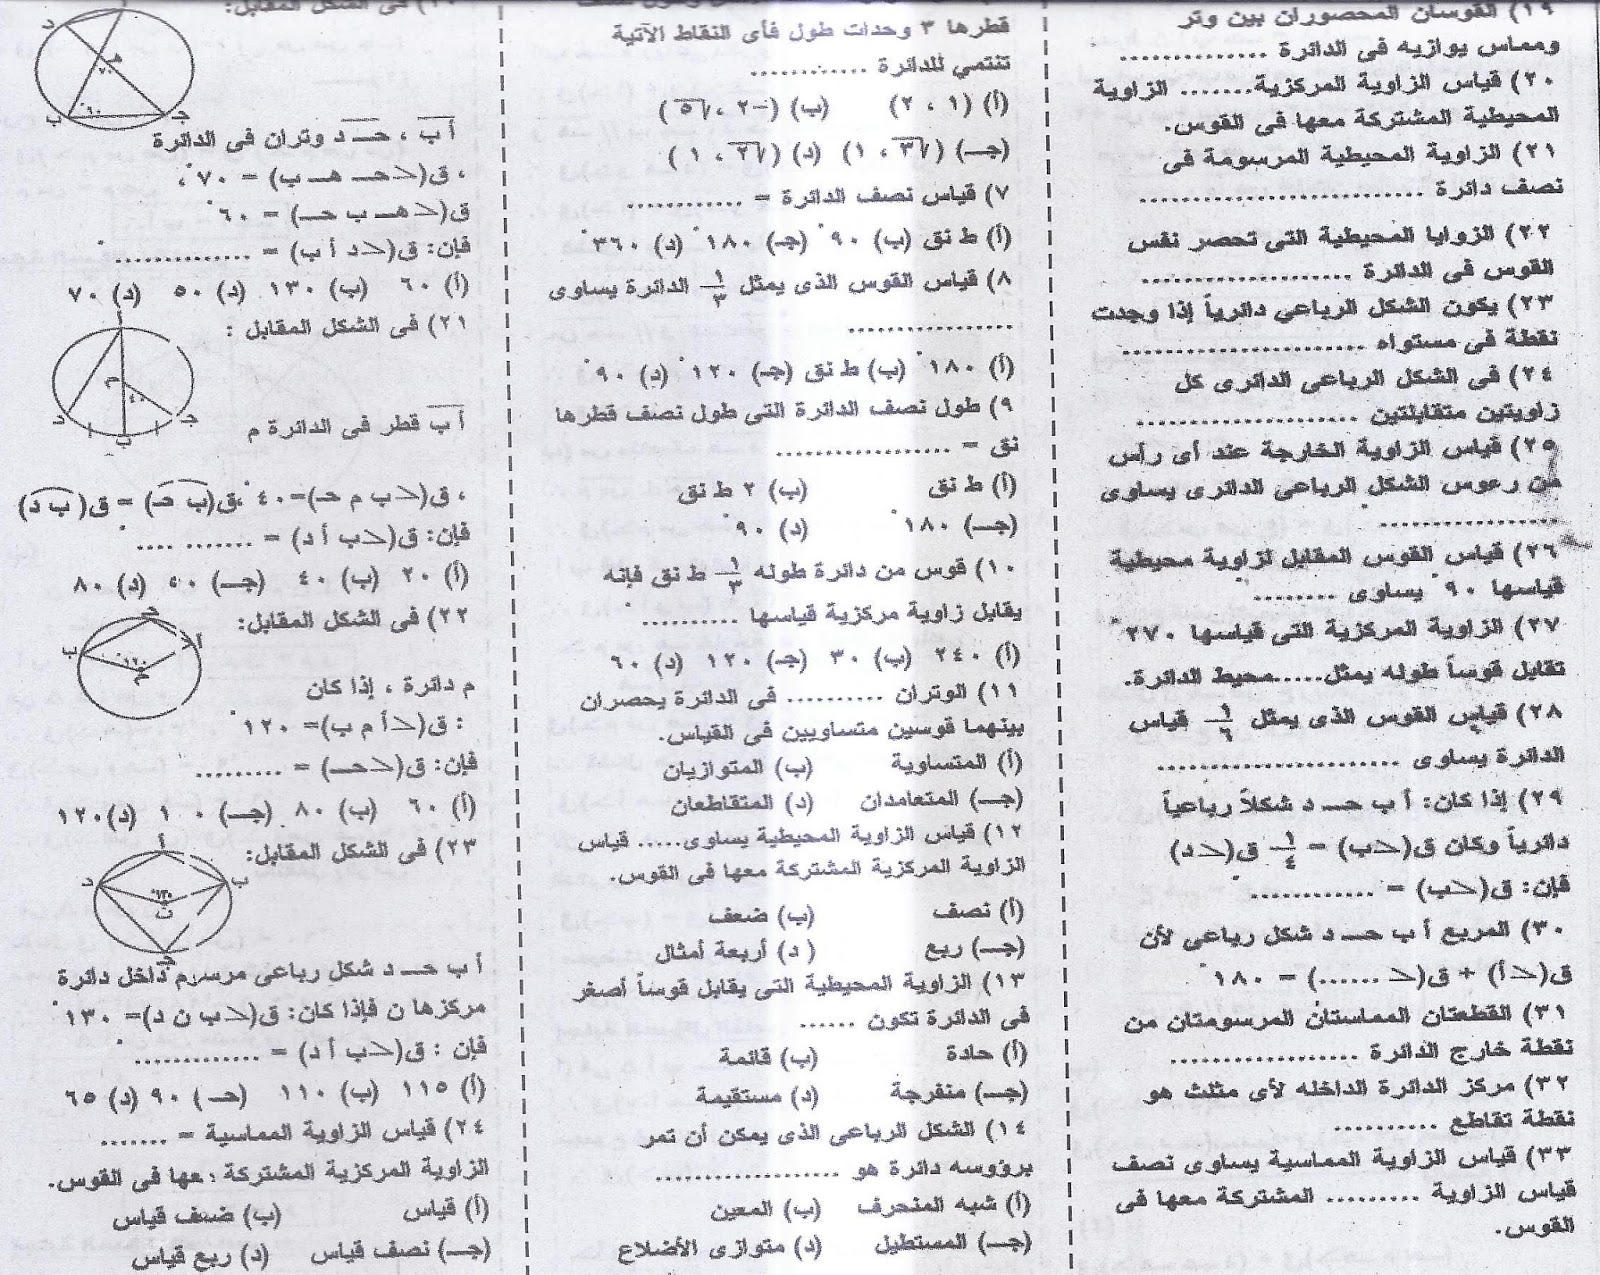 ١٩) القوسان المحصوران بين وتر
ومماس يوازيه فى الدائرة ..............
٢٠) قياس الزاوية المركزية....... الزاوية
المحيطية المشتركة معها فى القوس.
٢١) الزاوية المحيطية المرسومة فى
نصف دائرة ............................
٢٢) الزوايا المحيطية التى تحصر نفس
القوس فى الدائرة ....................
٢٣) يكون الشكل الرباعي دائرياً إذا وجدت
نقطة فى مستواه ........................
٢٤) فى الشكل الرباعى الدائرى كل
زاويتين متقابلتين ......................
٢٥) قياس الزاوية الخارجة عند أى رأس
من رءوس الشكل الرباعى الدائرى يساوى
..................
٢٦) قياس القوس المقابل لزاوية محيطية
قياسها ٩٠° يساوى ........
٢٧) الزاوية المركزية التى قياسها ٢٧٠°
تقابل قوساً طوله يمثل.....محيط الدائرة.
٢٨) قياس القوس الذى يمثل ١/٦ قياس
الدائرة يساوى ........................
٢٩) إذا كان: أ ب حـ د شكلاً رباعياً
دائرياً وكان ق(<ب) = ١/٤ ق(<د)
فإن: ق(<ب) = ............
٣٠) المربع أ ب حـ د شكل رباعى لأن
ق(<أ) + ق(< ......) = ١٨٠°
٣١) القطعتان المماستان المرسومتان من
نقطة خارج الدائرة ...................
٣٢) مركز الدائرة الداخله لأى مثلث هو
نقطة تقاطع ..........
٣٣) قياس الزاوية المماسية يساوى نصف
قياس الزاوية ......... المشتركة معها فى
القوس.
قطرها ٣ وحدات طول فأى النقاط الآتية
تنتمي للدائرة ............
(أ) (١ ، ٢) (ب) (-٢ ، √٥)
(جـ) (√٣ ، ١) (د) (√٢ ، ١)
٧) قياس نصف الدائرة = ............
(أ) ط نق (ب) ٩٠° (جـ) ١٨٠° (د) ٣٦٠°
٨) قياس القوس الذى يمثل ١/٣ الدائرة يساوى
.................
(أ) ١٨٠° (ب) ط نق (جـ) ١٢٠° (د) ٩٠°
٩) طول نصف الدائرة التى طول نصف قطرها
نق = ..................
(أ) ط نق (ب) ٢ ط نق
(جـ) ١٨٠° (د) ٩٠°
١٠) قوس من دائرة طوله ١/٣ ط نق فإنه
يقابل زاوية مركزية قياسها ..........°
(أ) ٢٤٠ (ب) ٣٠ (جـ) ١٢٠ (د) ٦٠
١١) الوتران .......... فى الدائرة يحصران
بينهما قوسين متساويين فى القياس.
(أ) المتساوية (ب) المتوازيان
(جـ) المتعامدان (د) المتقاطعان
١٢) قياس الزاوية المحيطية يساوى..... قياس
الزاوية المركزية المشتركة معها فى القوس.
(أ) نصف (ب) ضعف
(جـ) ربع (د) أربعة أمثال
١٣) الزاوية المحيطية التى يقابل قوساً أصغر
فى الدائرة تكون ......
(أ) حادة (ب) قائمة
(جـ) منفرجة (د) مستقيمة
١٤) الشكل الرباعى الذى يمكن أن تمر
برؤوسه دائرة هو ...................
(أ) شبه المنحرف (ب) المعين
(جـ) المستطيل (د) متوازى الأضلاع
فى الشكل المقابل:
د
هـ
٧٠°
٦٠°
ب
جـ
أ ب ، حـ د وتران فى الدائرة
، ق(<حـ هـ ب) = ٧٠° ،
ق(<هـ ب حـ) = ٦٠°
فإن: ق(<د أ ب) = ..............°
(أ) ٦٠ (ب) ١٣٠ (د) ٥٠ (د) ٧٠
٢١) فى الشكل المقابل :
أ
م
٤٠
د
ب
جـ
أ ب قطر فى الدائرة م
، ق(<ب م حـ)=٤٠° ،ق(ب حـ) = ق( ب د)
فإن: ق(<ب أ د) = ....... ....°
(أ) ٢٠ (ب) ٤٠ (جـ) ٥٠ (د) ٨٠
٢٢) فى الشكل المقابل:
جـ
أ
ب
١٢٠°
م
م دائرة ، إذا كان
: ق(<أ م ب)= ١٢٠°
فإن: ق(<حـ) = .........°
(أ) ٦٠ (ب) ٨٠ (جـ) ١٠٠ (د)١٢٠
٢٣) فى الشكل المقابل:
أ
د
ب
ن
جـ
أ ب حـ د شكل رباعى مرسوم داخل دائرة
مركزها ن فإذا كان: ق(<ب ن د)= ١٣٠°
فإن : ق(<ب أ د) = .............°
(أ) ١١٥ (ب) ١١٠ (حـ) ٩٠ (د) ٦٥
٢٤) قياس الزاوية المماسية = .......
الزاوية المركزية المشتركة معها فى القوس.
(أ) قياس (ب) ضعف قياس
(جـ) نصف قياس (د) ربع قياس